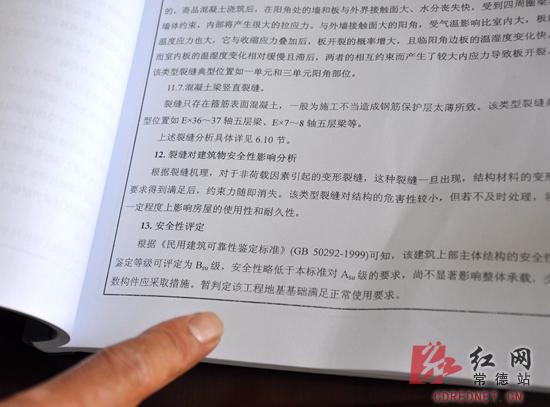 的。商品混凝土浇筑后，在阳角处的墙和板与外界接触面大、水分丧失快，受到四周圈梁
墙体约束，内部将产生很大的拉应力。与外墙接触面大的阳角，受气温影响比室内大，板
温度应力也大，它与收缩应力叠加后，板开裂的概率增大，且临阳角边板的温湿度变化快
而室内板的温湿度变化相对缓慢且滞后，两者的相互约束而产生了较大内应力导致板开裂
该类型裂缝典型位置如一单元和三单元阳角部位。
11.7.混凝土梁竖直裂缝。
裂缝只存在箍筋表面混凝土，一般为施工不当造成钢筋保护层太薄所致。该类
型位置如 E×36~37 轴五层梁、E×7~8 轴五层梁等。
上述裂缝分析具体详见 6.10 节。
12. 裂缝对建筑物安全性影响分析
根据裂缝机理，对于非荷载因素引起的变形裂缝，这种裂缝一旦出现，结构材料的变形
要求得到满足后，约束力随即消失。该类型裂缝对结构的危害性较小，但若不及时处理，将
一定程度上影响房屋的使用性和耐久性。
13. 安全性评定
根据《民用建筑可靠性鉴定标准》(GB 50292-1999)可知，该建筑上部主体结构的安全性
鉴定等级可评定为 Bsu 级，安全性略低于本标准对 Asu 级的要求，尚不显著影响整体承载，少
数构件应采取措施。暂判定该工程地基基础满足正常使用要求。
红网
常德站
CDREDNET.CN